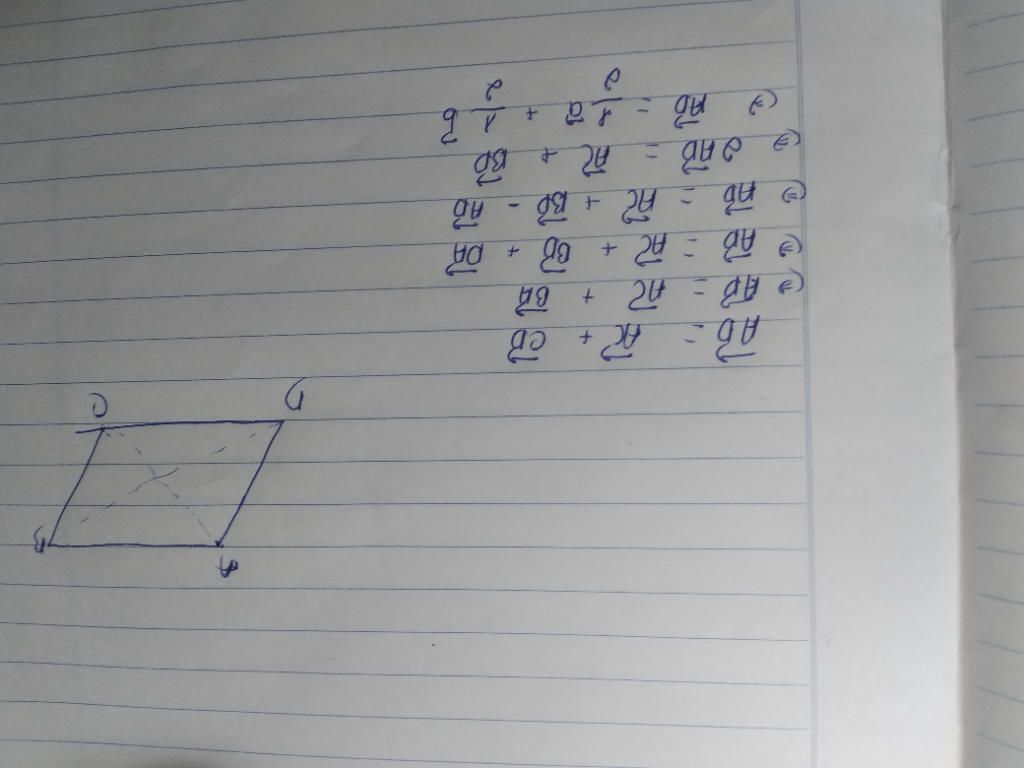 A
B
D C
$\vec{AD} = \vec{AC} + \vec{CD}$
$\Leftrightarrow \vec{AD} = \vec{AC} + \vec{BA}$
$\Leftrightarrow \vec{AD} = \vec{AC} + \vec{BD} + \vec{DA}$
$\Leftrightarrow \vec{AD} = \vec{AC} + \vec{BD} - \vec{AD}$
$\Leftrightarrow 2\vec{AD} = \vec{AC} + \vec{BD}$
$\Leftrightarrow \vec{AD} = \frac{1}{2}\vec{a} + \frac{1}{2}\vec{b}$